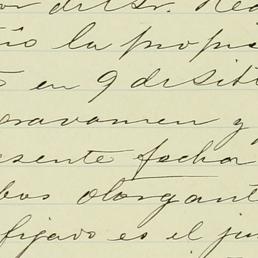 or del Sr. Rea
io la propie
en 9 de Sete
gravamen y
esente fecha
bos otorgant
fijado es el ju